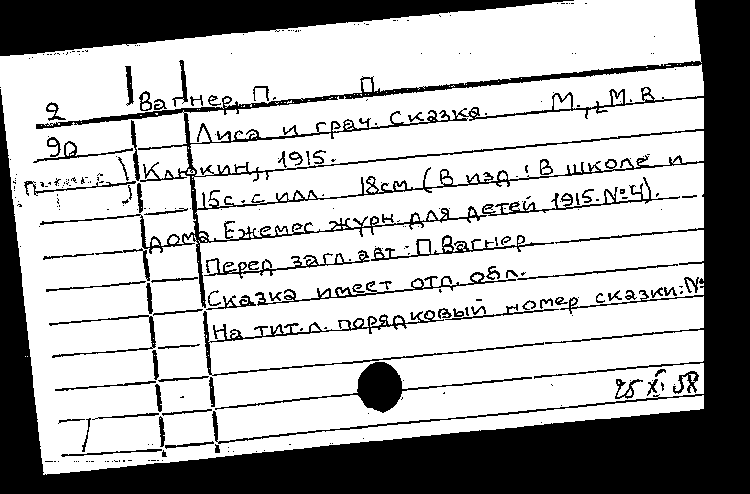 2 Вагнер, П. П.
90 Лиса и грач. Сказка. М., М. В.
Клюкин, 1915.
15с. с илл. 18см. (В изд: В школе и
дома. Ежемес. журн. для детей. 1915. №4).
Перед загл. авт: П. Вагнер.
Сказка имеет отд. обл.
На тит. л. порядковый номер сказки: №
25 XI 58